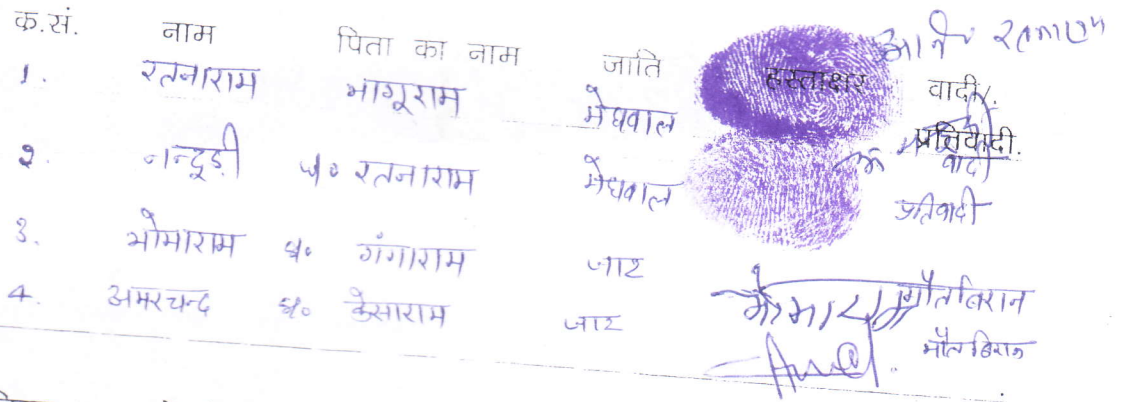 क्र.सं. नाम पिता का नाम जाति हस्ताक्षर वादी/प्रतिवादी.
1. रतनाराम भागूराम मेघवाल वादी
2. नन्दूड़ी प॰ रतनाराम मेघवाल प्रतिवादी
3. भोमाराम पु॰ गंगाराम जाट भोमाराम मौतबिरान
4. अमरचन्द पु॰ केसाराम जाट मौतबिरान